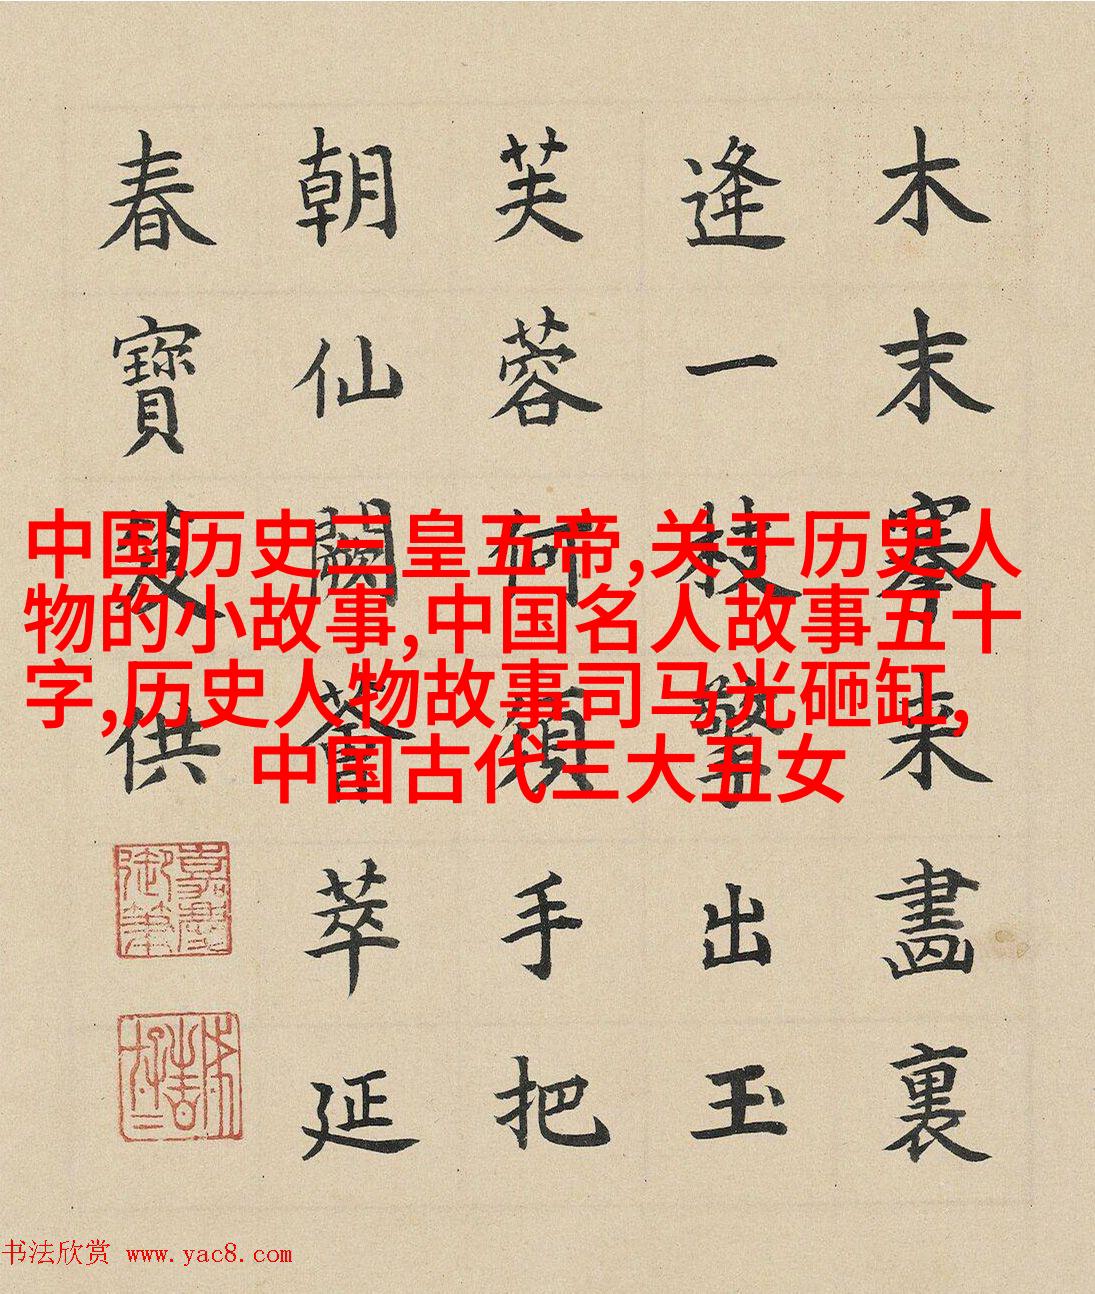 木末搴来畫裏
逢一枝擎出玉
芙蓉何須手把
朝仙闕薈萃延
春寶供
嘉慶御筆
中国历史三皇五帝,关于历史人
物的小故事,中国名人故事五十
字,历史人物故事司马光砸缸,
中国古代三大丑女
书法欣赏 www.yac8.com